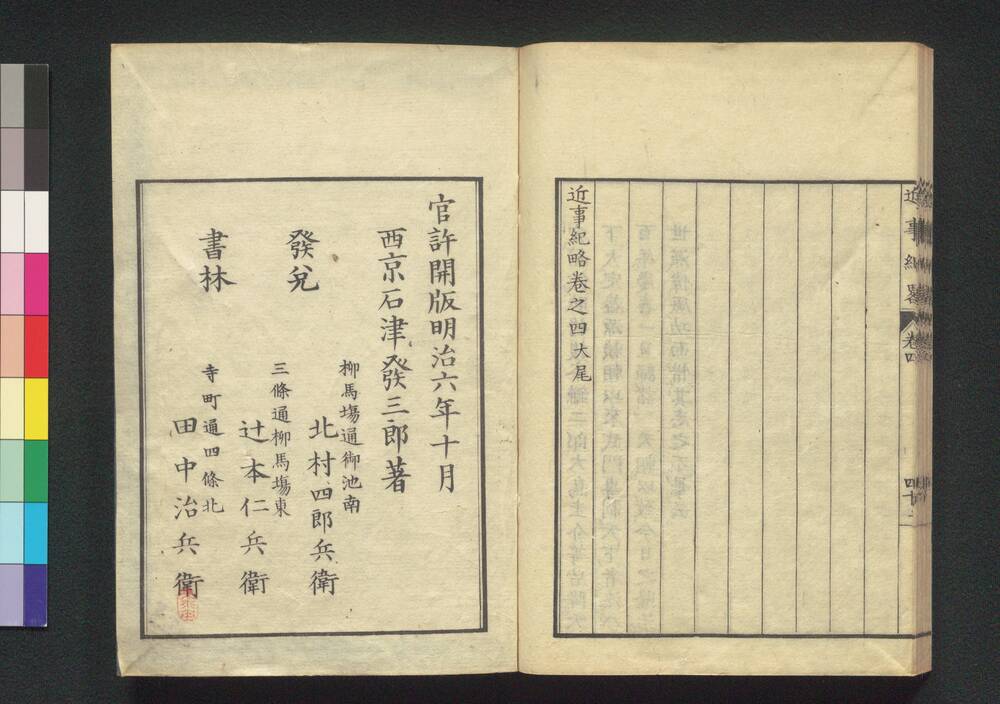 近事紀略卷之四大尾
近事紀畧 卷四
官許開版明治六年十月
西京石津發三郎著
發兌
柳馬塲通御池南
北村四郎兵衛
三條通柳馬塲東
辻本仁兵衛
書林
寺町通四條北
田中治兵衛